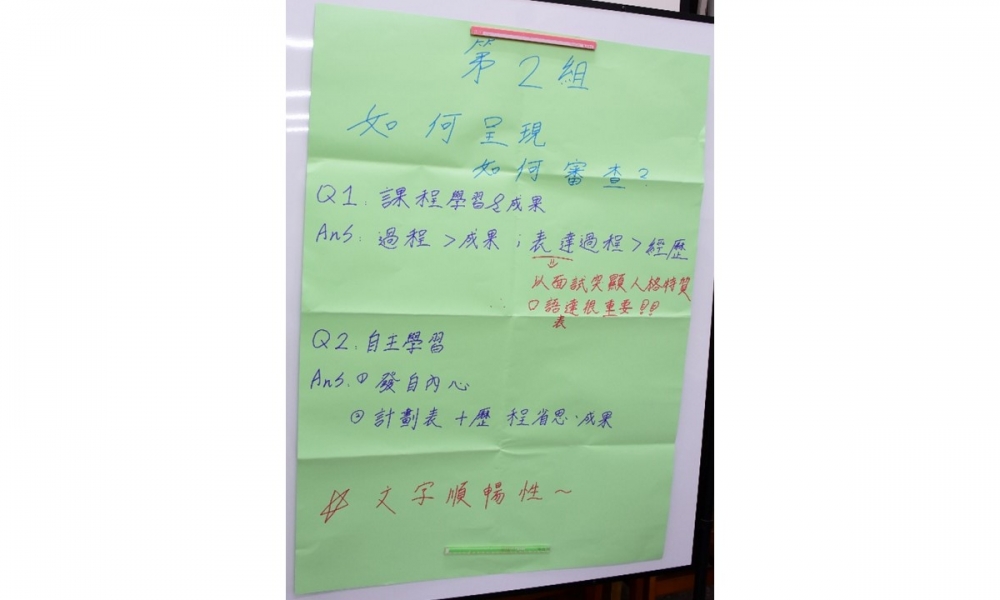 第2組
如何呈現
如何審查?
Q1. 課程學習&成果
Ans: 過程 > 成果 ; 表達過程 > 經歷
以面試突顯人格特質
口語表達很重要!!
Q2. 自主學習
Ans. ① 發自內心
② 計劃表 + 歷程省思、成果
☆ 文字順暢性~